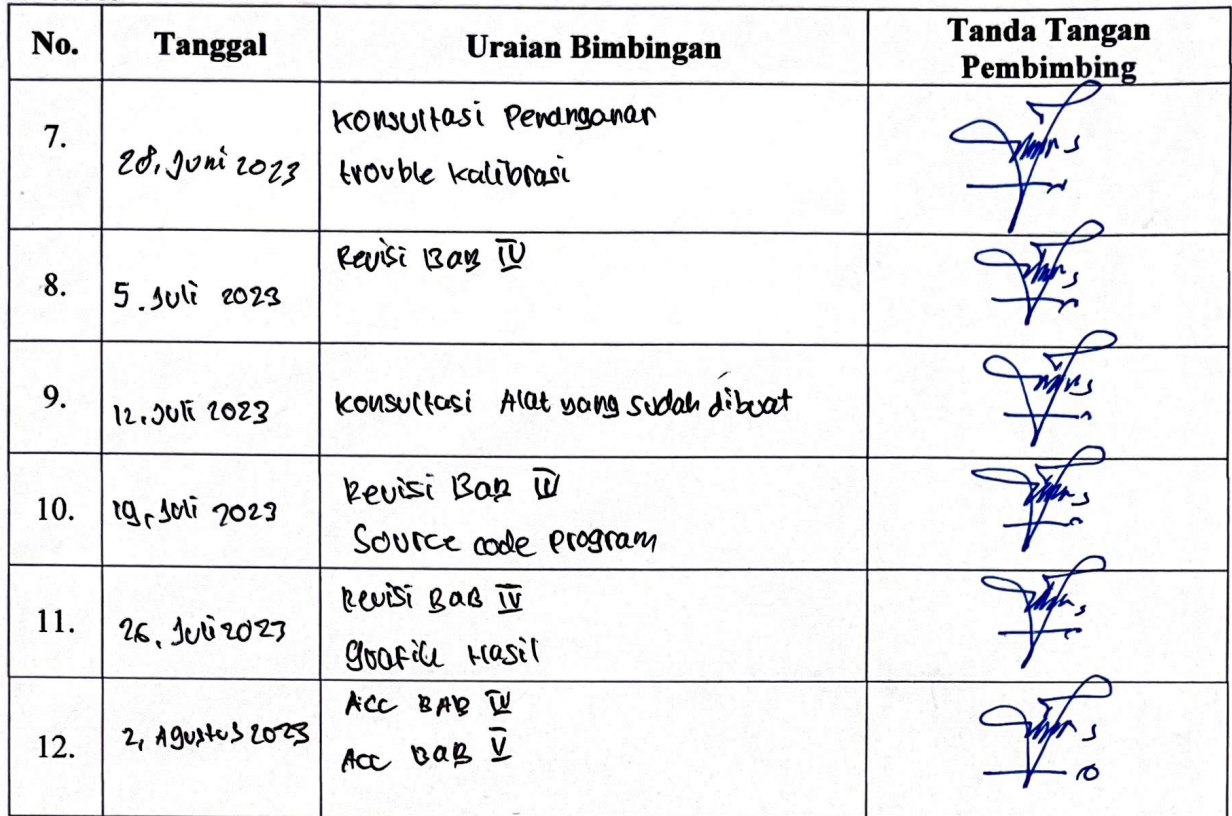 No. Tanggal Uraian Bimbingan Tanda Tangan Pembimbing
7. 28, Juni 2023 Konsultasi Penanganan
trouble kalibrasi
8. 5. Juli 2023 Revisi BAB IV
9. 12. Juli 2023 Konsultasi Alat yang sudah dibuat
10. 19, Juli 2023 Revisi BAB IV
Source code program
11. 26. Juli 2023 Revisi BAB IV
Grafik Hasil
12. 2, Agustus 2023 ACC BAB IV
ACC BAB V